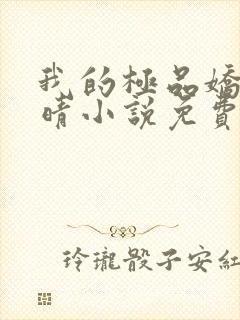 我的極品嬌
晴小說免費
玲瓏骰子安紅